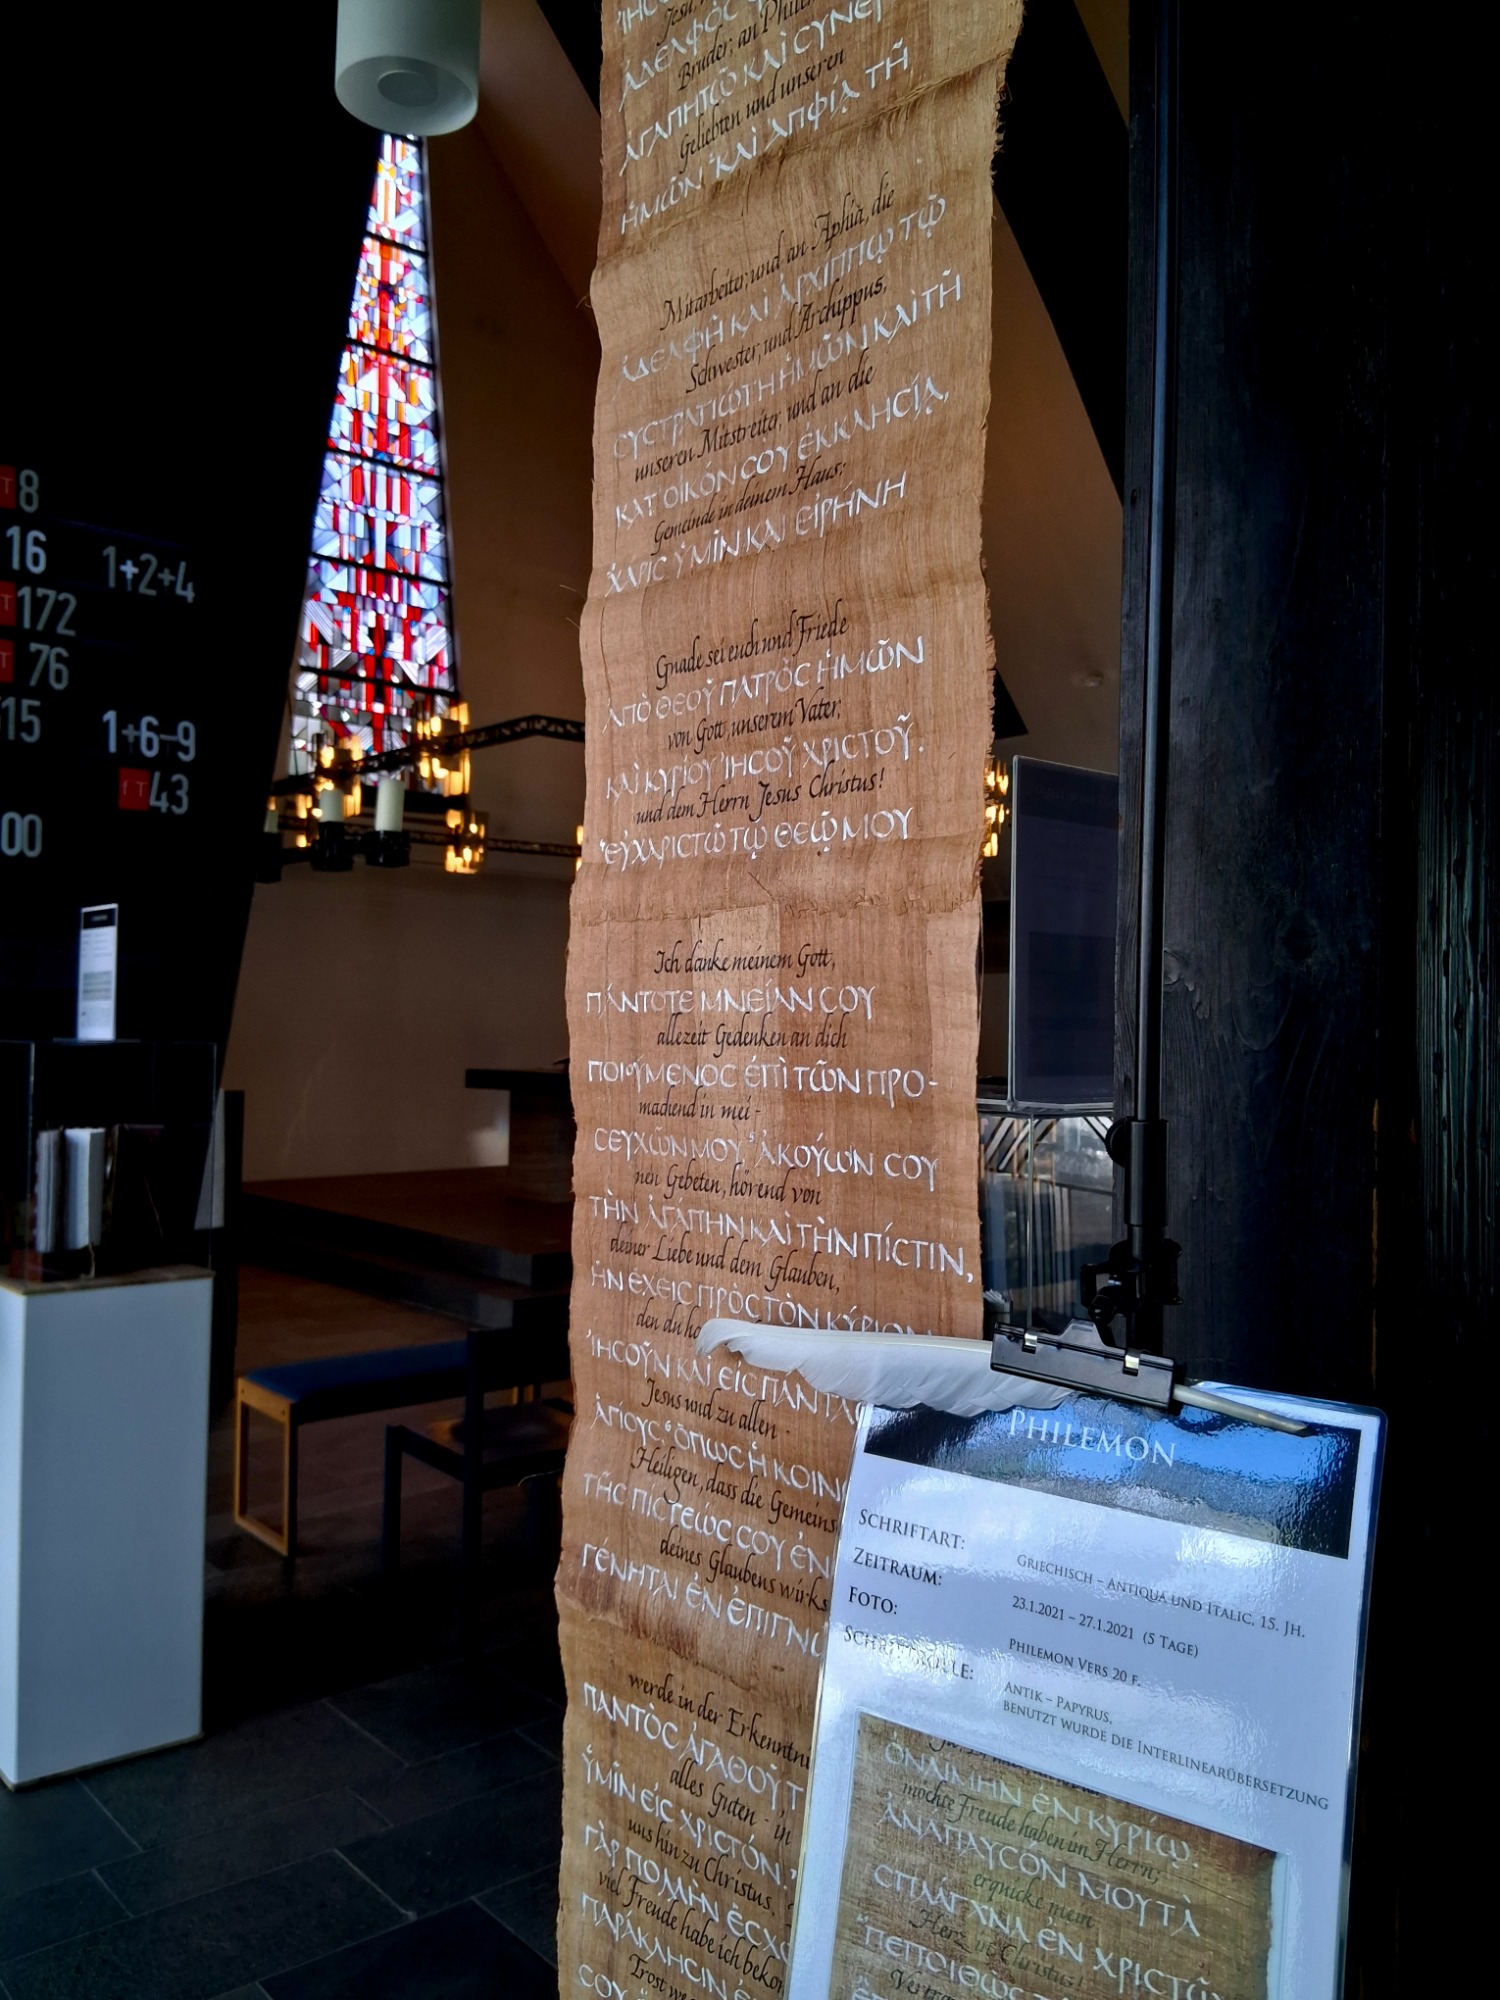 8
16 1+2+4
T 172
T 76
15 1+6–9
f T 43
00
ἈΔΕΛΦῸС
Bruder, an
ἈΓΑΠΗΤῶ ΚΑῚ СΥΝΕΡ
Geliebten und unseren
ἩΜῶΝ ΚΑῚ ἈΠΦΊΑ ΤΗ͂
Mitarbeiter, und an Aphia, die
ἈΔΕΛΦΗ͂ ΚΑῚ ἈΡΧΊΠΠῳ Τῷ
Schwester, und Archippus,
СΥСΤΡΑΤΙώΤΗ ἩΜῶΝ ΚΑῚ ΤΗ͂
unseren Mitstreiter, und an die
ΚΑΤ ΟἾΚΌΝ СΟΥ ἘΚΚΛΗСΊᾳ,
Gemeinde in deinem Haus:
ΧΆΡΙС ὙΜΙ͂Ν ΚΑῚ ΕἸΡΉΝΗ
Gnade sei euch und Friede
ἈΠῸ ΘΕΟΥ͂ ΠΑΤΡῸС ἩΜῶΝ
von Gott, unserem Vater,
ΚΑῚ ΚΥΡΊΟΥ ἸΗСΟΥ͂ ΧΡΙСΤΟΥ͂.
und dem Herrn Jesus Christus!
ἘΥΧΑΡΙСΤῶ Τῷ ΘΕῷ ΜΟΥ
Ich danke meinem Gott,
ΠΆΝΤΟΤΕ ΜΝΕΊΑΝ СΟΥ
allezeit Gedenken an dich
ΠΟΙΟΎΜΕΝΟС ἘΠῚ ΤῶΝ ΠΡΟ-
machend in mei-
СΕΥΧῶΝ ΜΟΥ, ⁵ ἈΚΟΎωΝ СΟΥ
nen Gebeten, hörend von
ΤῊΝ ἈΓΆΠΗΝ ΚΑῚ ΤῊΝ ΠΊСΤΙΝ,
deiner Liebe und dem Glauben,
ἫΝ ἜΧΕΙС ΠΡῸС ΤῸΝ ΚΎΡΙΟΝ
den du
ἸΗСΟΥ͂Ν ΚΑῚ ΕἸС ΠΆΝΤΑ
Jesus und zu allen -
ἉΓΊΟΥС ⁶ ὍΠωС Ἡ ΚΟΙΝ
Heiligen, dass die Gemeins
ΤΗ͂С ΠΊСΤΕώС СΟΥ ἘΝ
deines Glaubens wirks
ΓΈΝΗΤΑΙ ἘΝ ἘΠΙΓΝ
werde in der Erkenntni
ΠΑΝΤῸС ἈΓΑΘΟΥ͂ Τ
alles Guten - in
ὙΜΙ͂Ν ΕἸС ΧΡΙСΤΌΝ.
uns hin zu Christus.
ΓᾺΡ ΠΟΛΛῊΝ ἜСΧΟ
viel Freude habe ich bekom
ΠΑΡΆΚΛΗСΙΝ
Trost
СΟΥ
PHILEMON
SCHRIFTART: GRIECHISCH – ANTIQUA UND ITALIC, 15. JH.
ZEITRAUM: 23.1.2021 – 27.1.2021 (5 TAGE)
FOTO: PHILEMON VERS 20 F.
SCHRIFTROLLE: ANTIK – PAPYRUS,
BENUTZT WURDE DIE INTERLINEARÜBERSETZUNG
ὈΝΑΊΜΗΝ ἘΝ ΚΥΡΊῳ.
möchte Freude haben im Herrn;
ἈΝΆΠΑΥСΌΝ ΜΟΥ ΤᾺ
erquicke mein
СΠΛΆΓΧΝΑ ἘΝ ΧΡΙСΤῷ
Herz in Christus!
ΠΕΠΟΙΘῺС